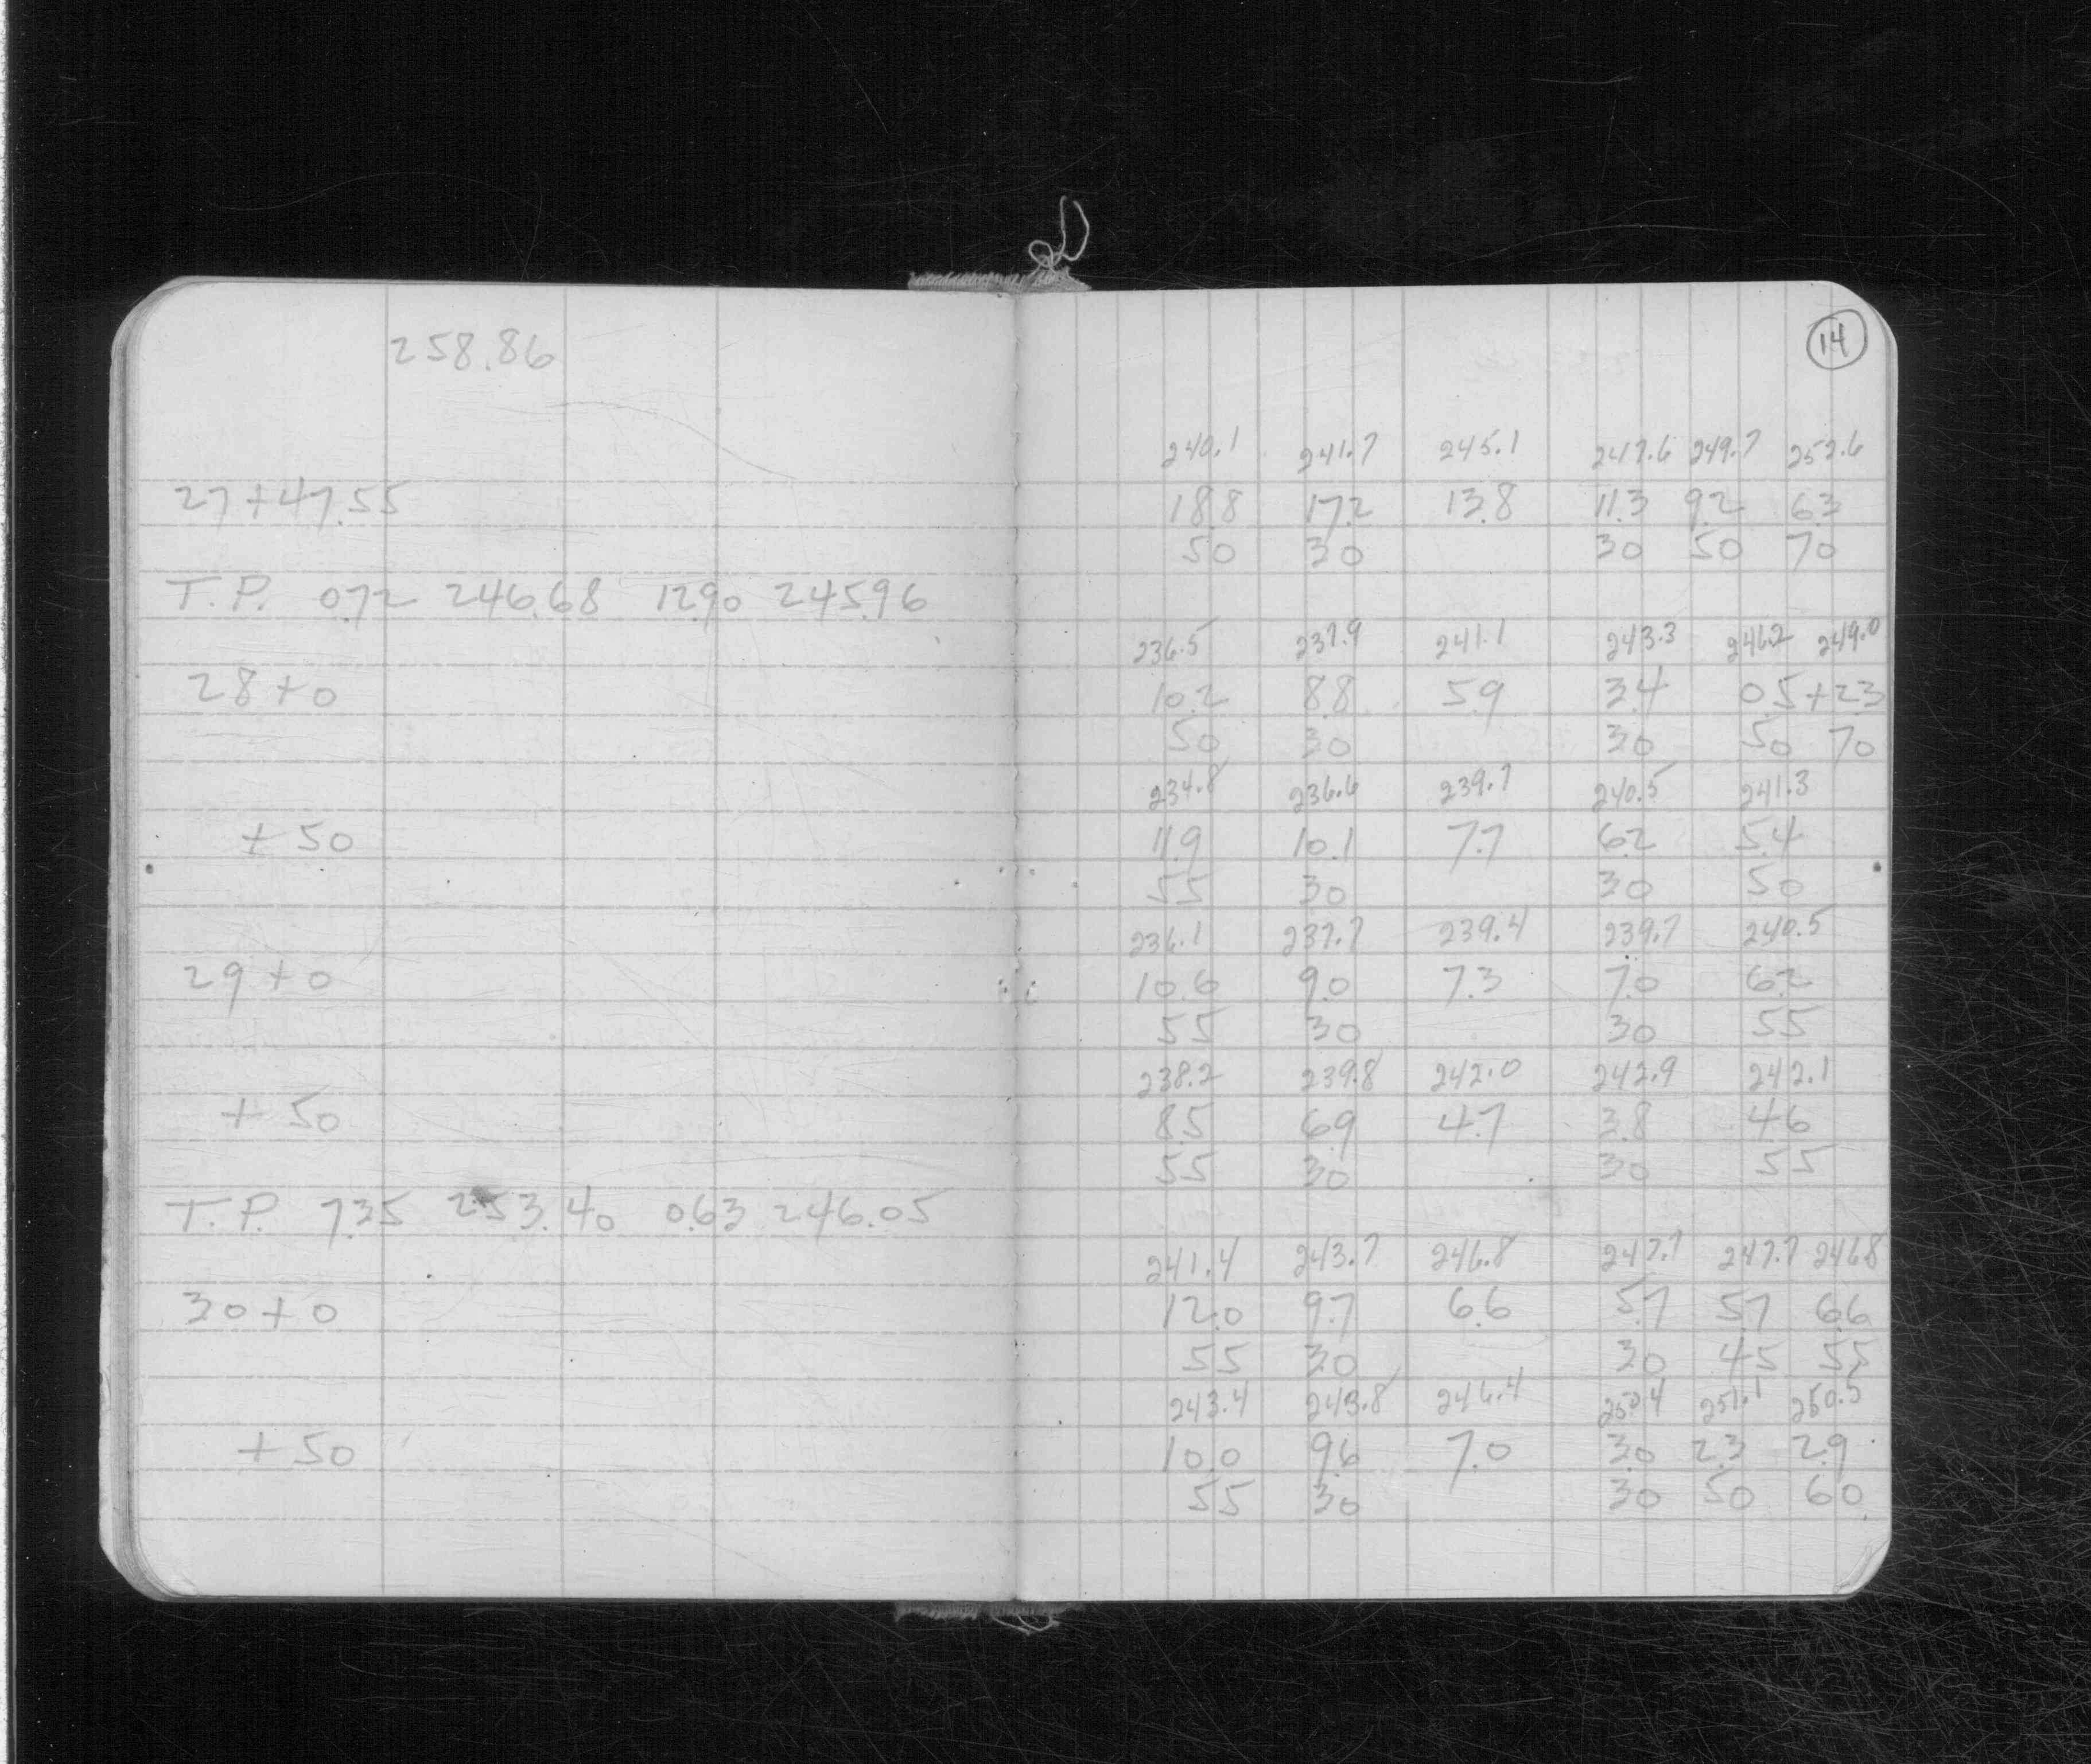 258.86
14
240.1 241.7 245.1 247.6 249.7 252.6
27+47.55 18.8 17.2 13.8 11.3 9.2 6.3
50 30 30 50 70
T.P. 0.72 246.68 12.90 245.96
236.5 237.9 241.1 243.3 246.2 249.0
28+0 10.2 8.8 5.9 3.4 0.5 +2.3
50 30 30 50 70
234.8 236.6 239.7 240.5 241.3
+50 11.9 10.1 7.7 6.2 5.4
55 30 30 50
236.1 237.7 239.4 239.7 240.5
29+0 10.6 9.0 7.3 7.0 6.2
55 30 30 55
238.2 239.8 242.0 242.9 242.1
+50 8.5 6.9 4.7 3.8 4.6
55 30 30 55
T.P. 7.35 253.40 0.63 246.05
241.4 243.7 246.8 247.7 247.7 246.8
30+0 12.0 9.7 6.6 5.7 5.7 6.6
55 30 30 45 55
243.4 243.8 246.4 250.4 251.1 250.5
+50 10.0 9.6 7.0 3.0 2.3 2.9
55 30 30 50 60